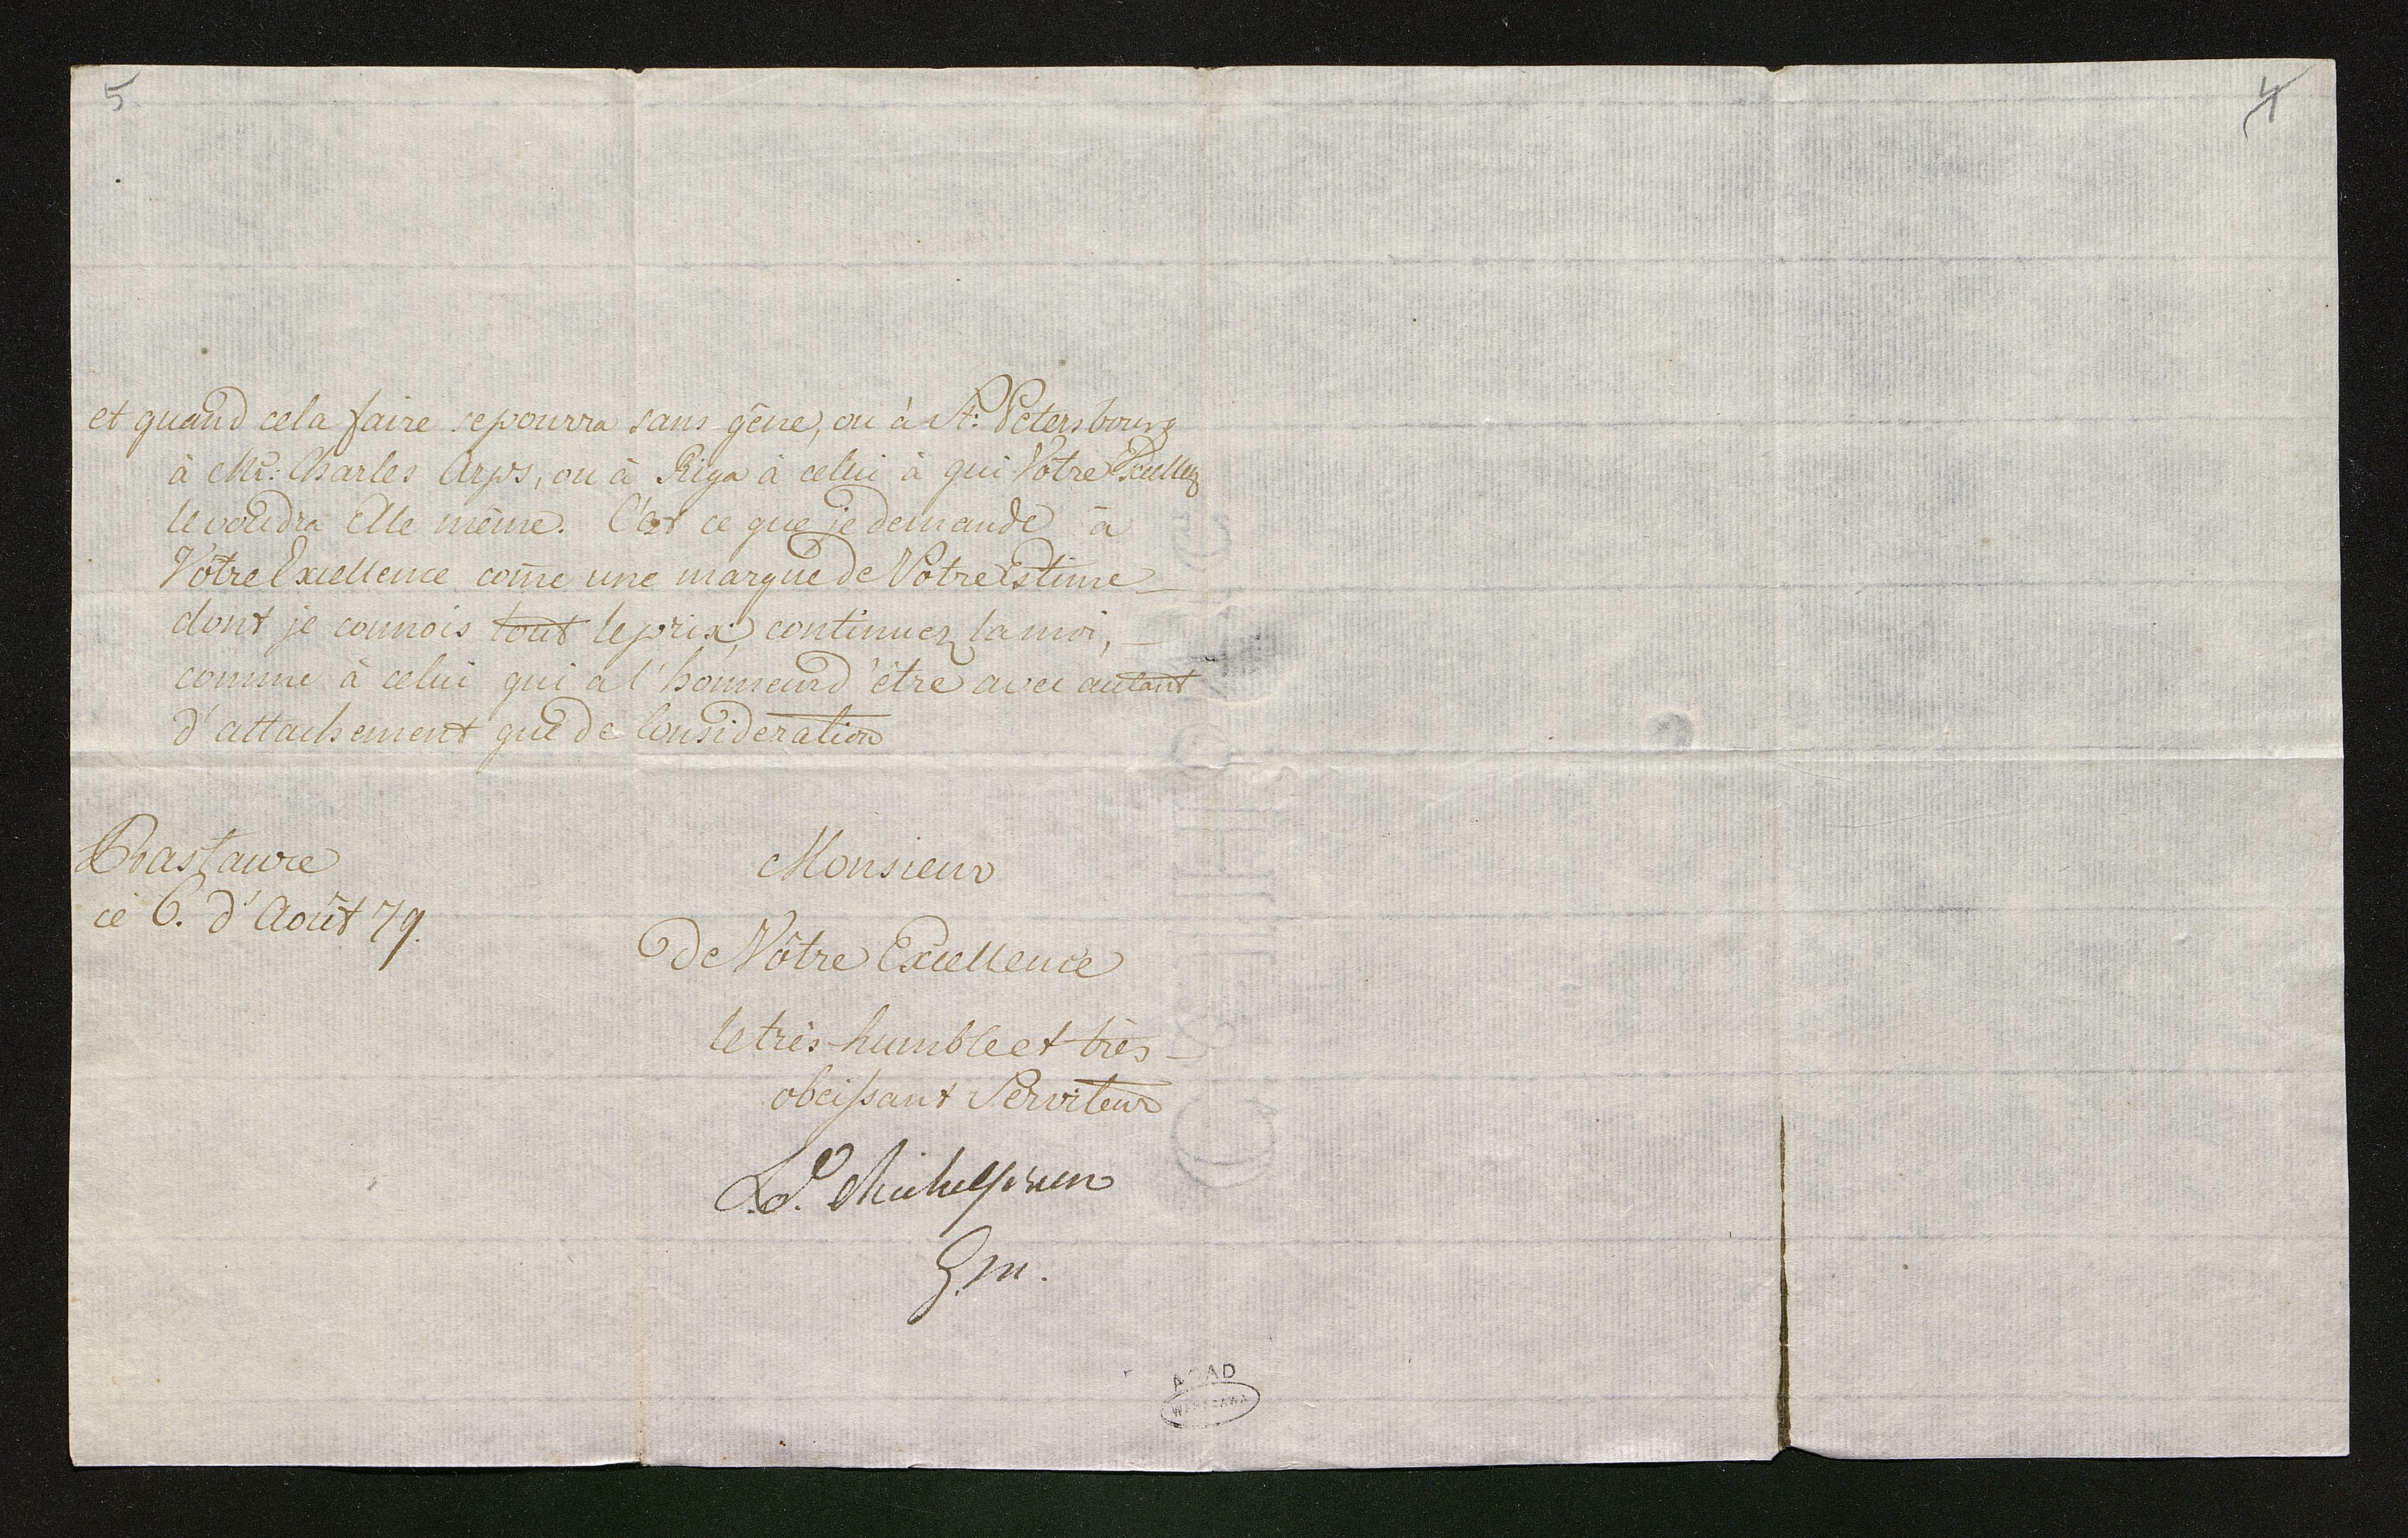 5
4
et quand cela faire se pourra sans gêne, ou à St: Petersbourg
à Mr: Charles Arps, ou à Riga à celui à qui Votre Excellenz
le voudra Elle même. C'est ce que je demande à
Vôtre Excellence com̄e une marque de Votre Estime
dont je connois tout le prix, continuez la moi,
comme à celui qui a l'honneur d'être avec autant
d'attachement que de Consideration
Monsieur
de Vôtre Excellence
le très humble et très-
obeissant Serviteur
ce 6. d'Août 79.
G.M.
AGAD
WARSZAWA